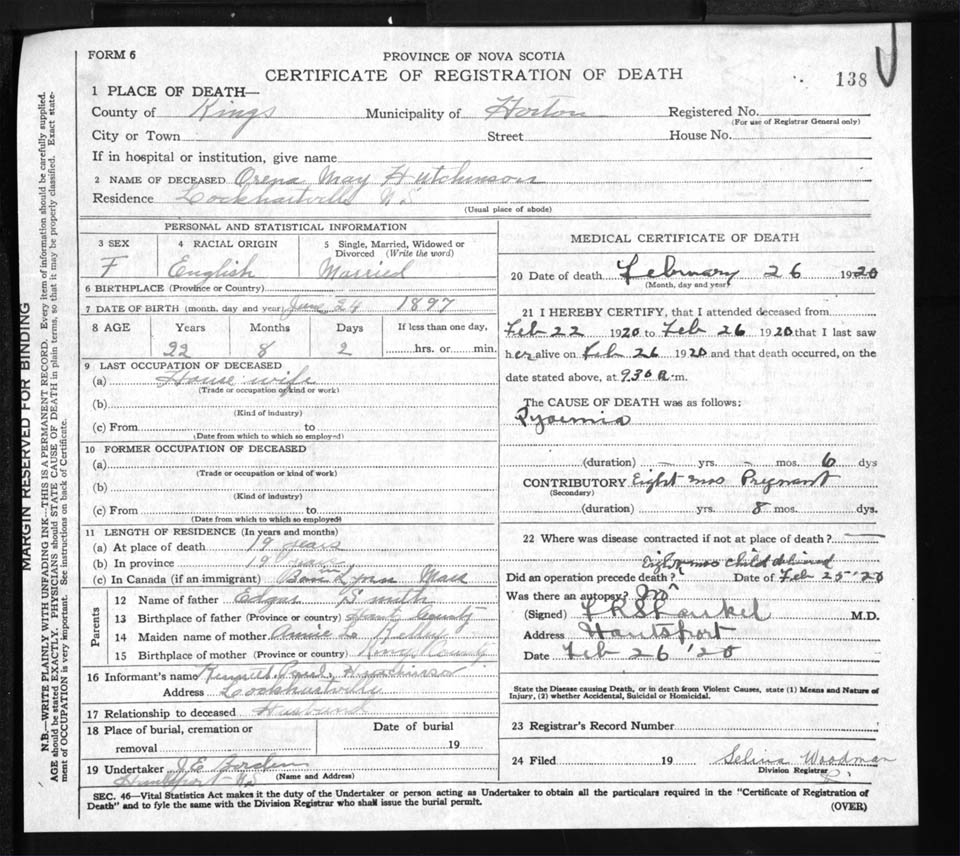 FORM 6
PROVINCE OF NOVA SCOTIA
CERTIFICATE OF REGISTRATION OF DEATH
138
1 PLACE OF DEATH—
County of Kings Municipality of Horton Registered No.
(For use of Registrar General only)
City or Town Street House No.
If in hospital or institution, give name
2 NAME OF DECEASED Orena May Hutchinson
Residence Lockhartville N.S
(Usual place of abode)
PERSONAL AND STATISTICAL INFORMATION
3 SEX F
4 RACIAL ORIGIN English
5 Single, Married, Widowed or Divorced (Write the word) Married
6 BIRTHPLACE (Province or Country)
7 DATE OF BIRTH (month, day and year) June 24 1897
8 AGE Years Months Days If less than one day,
22 8 2 hrs. or min.
9 LAST OCCUPATION OF DECEASED
(a) House wife
(Trade or occupation or kind or work)
(b)
(Kind of industry)
(c) From to
(Date from which to which so employed)
10 FORMER OCCUPATION OF DECEASED
(a)
(Trade or occupation or kind of work)
(b)
(Kind of industry)
(c) From to
(Date from which to which so employed)
11 LENGTH OF RESIDENCE (In years and months)
(a) At place of death 19 years
(b) In province 19 years
(c) In Canada (if an immigrant) Born in Lynn Mass
Parents
12 Name of father Edgar Smith
13 Birthplace of father (Province or country) Hants County
14 Maiden name of mother Annie
15 Birthplace of mother (Province or country) Kings County
16 Informant's name Paul
Address Lockhartville
17 Relationship to deceased Husband
18 Place of burial, cremation or removal Date of burial
19
19 Undertaker J E Borden
(Name and Address)
Hantsport N.S
MEDICAL CERTIFICATE OF DEATH
20 Date of death February 26 1920
(Month, day and year)
21 I HEREBY CERTIFY, that I attended deceased from
Feb 22 1920 to Feb 26 1920 that I last saw
her alive on Feb 26 1920 and that death occurred, on the
date stated above, at 930 a.m.
The CAUSE OF DEATH was as follows:
Pyaemia
(duration) — yrs. — mos. 6 dys
CONTRIBUTORY Eight mos Pregnant
(Secondary)
(duration) yrs. 8 mos. dys.
22 Where was disease contracted if not at place of death?
Eight mos child delivered
Did an operation precede death? Date of Feb 25 '20
Was there an autopsy? No
(Signed) M.D.
Address Hantsport
Date Feb 26 '20
State the Disease causing Death, or in death from Violent Causes, state (1) Means and Nature of
Injury, (2) whether Accidental, Suicidal or Homicidal.
23 Registrar's Record Number
24 Filed 19 Selina Woodman
Division Registrar
SEC. 46—Vital Statistics Act makes it the duty of the Undertaker or person acting as Undertaker to obtain all the particulars required in the "Certificate of Registration of
Death" and to fyle the same with the Division Registrar who shall issue the burial permit.
(OVER)
MARGIN RESERVED FOR BINDING
N.B.—WRITE PLAINLY WITH UNFADING INK—THIS IS A PERMANENT RECORD. Every item of information should be carefully supplied.
AGE should be stated EXACTLY. PHYSICIANS should STATE CAUSE OF DEATH in plain terms, so that it may be properly classified. Exact state-
ment of OCCUPATION is very important. See instructions on back of Certificate.